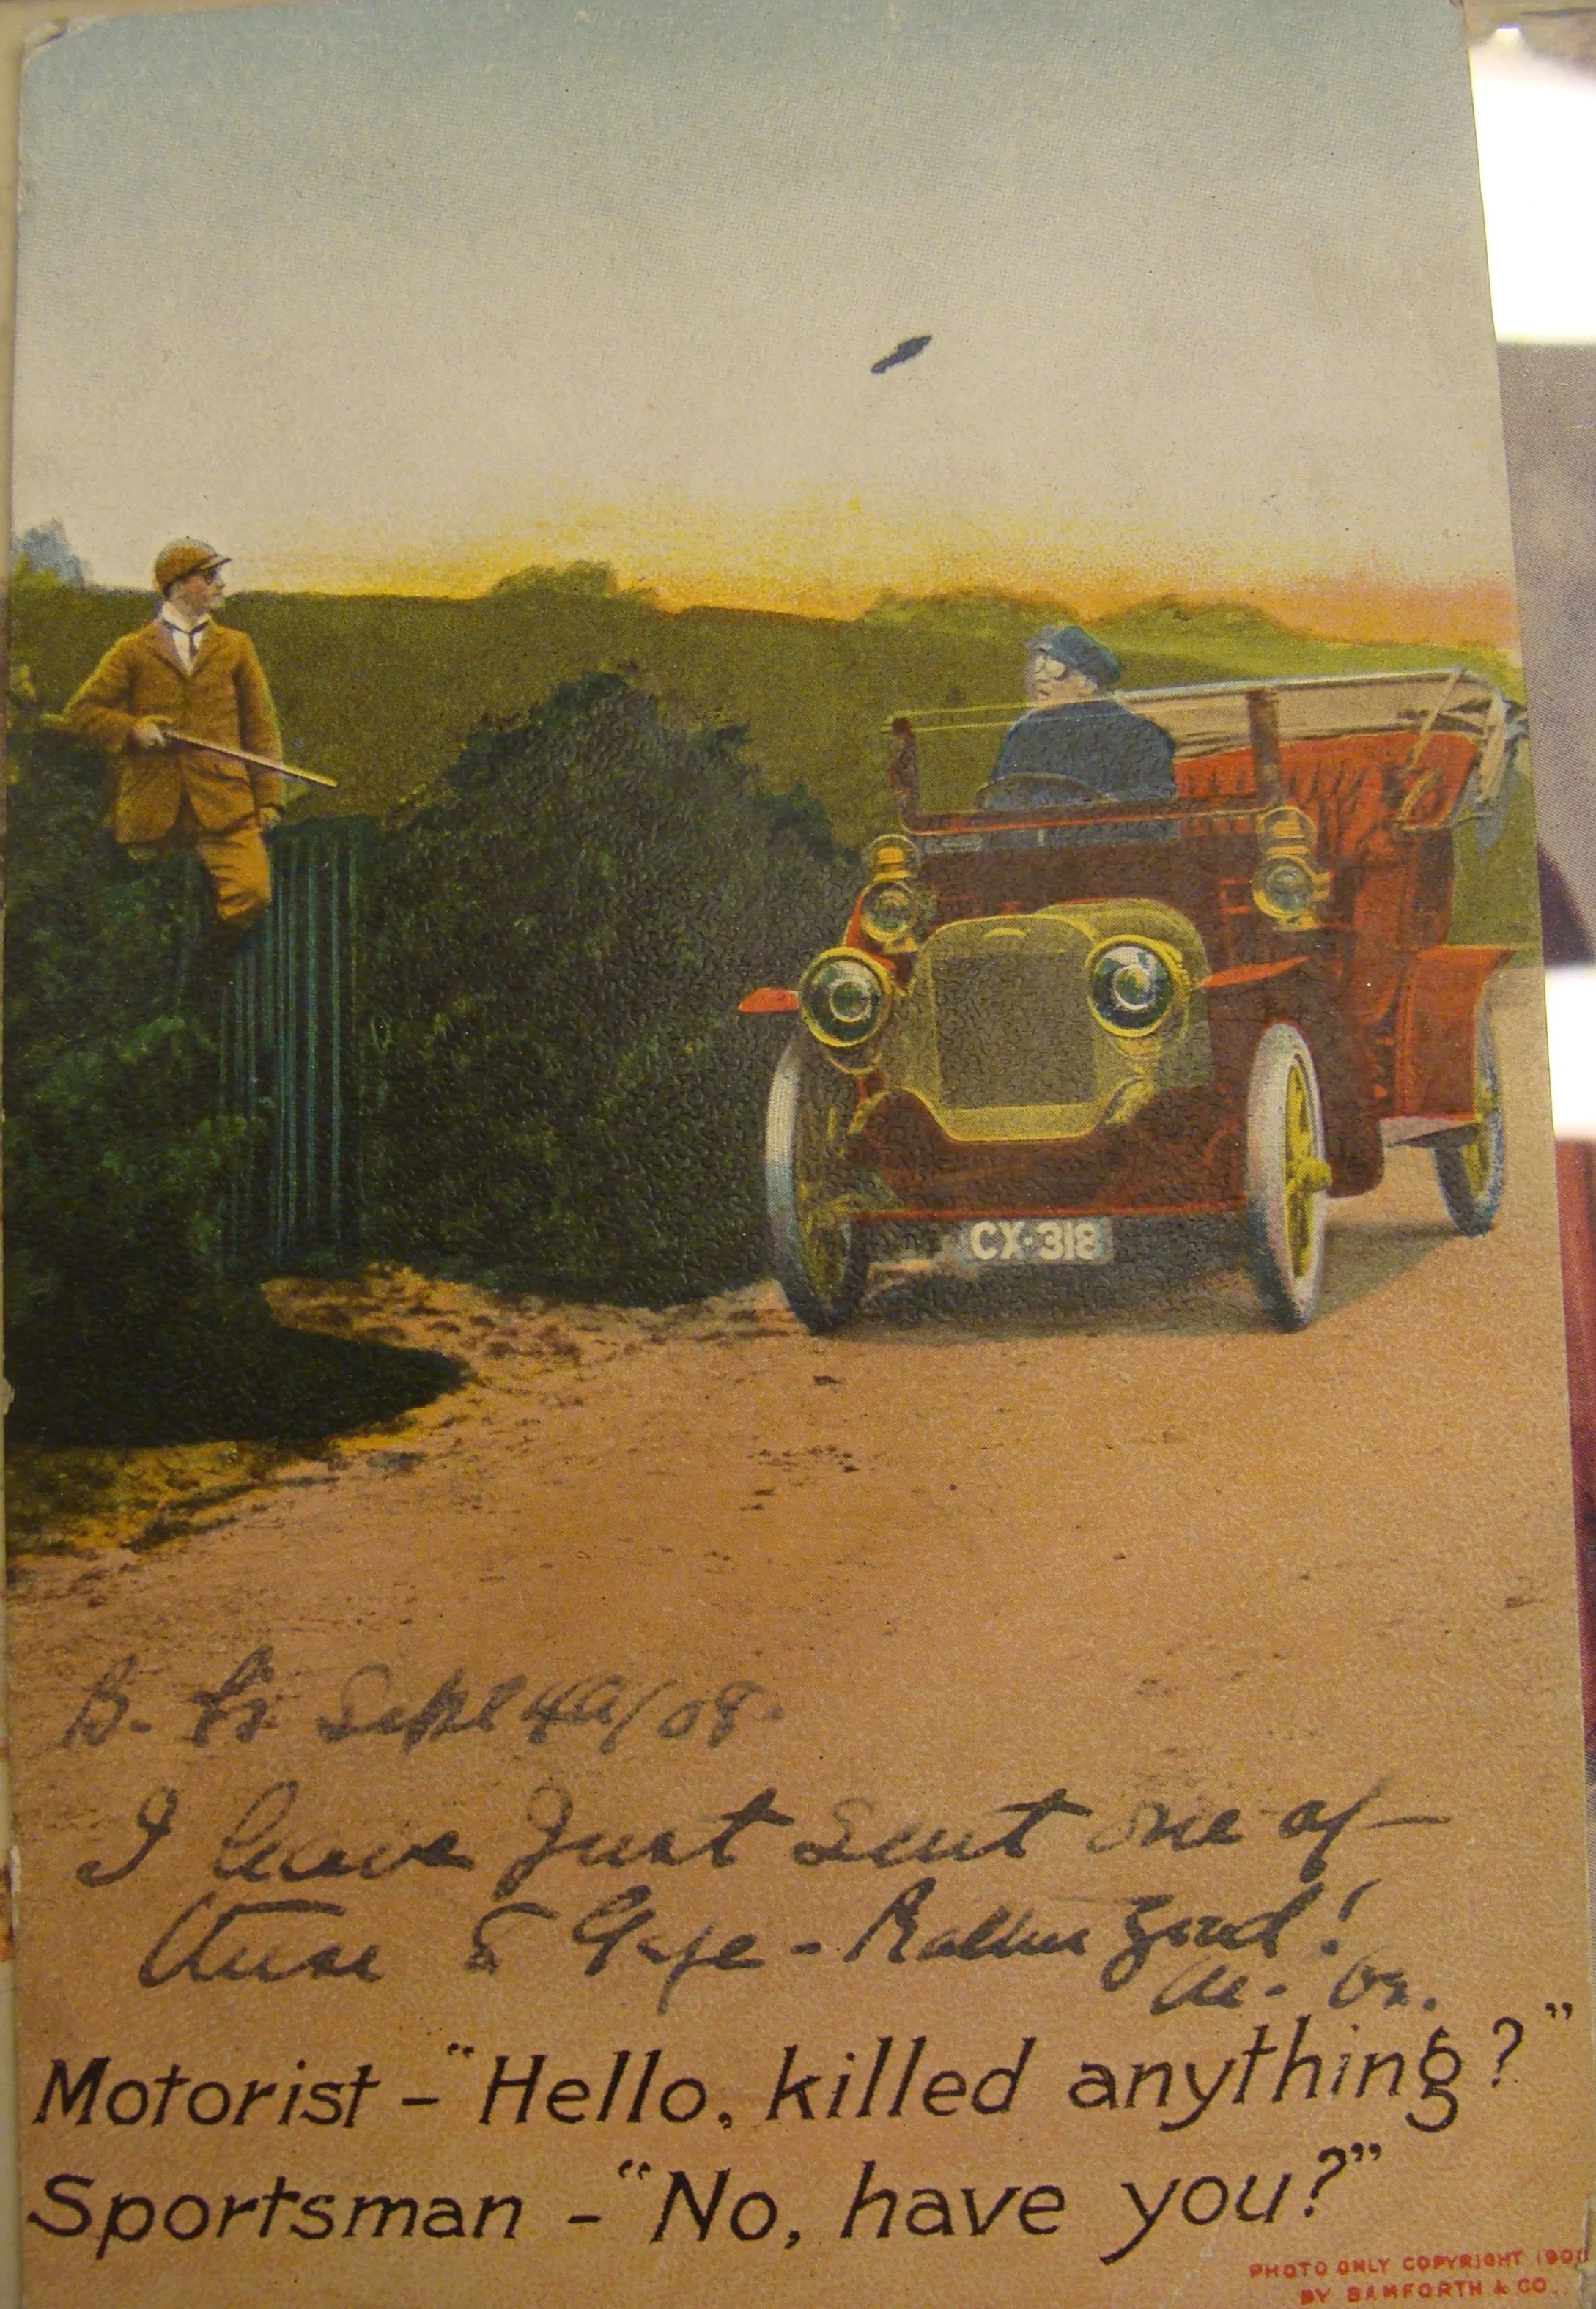 CX·318
B. Sept 4th/08.
I have Just Sent one of
these to - Rather good!
Motorist - "Hello, killed anything?"
Sportsman - "No, have you?"
PHOTO ONLY COPYRIGHT
BY BAMFORTH & CO.